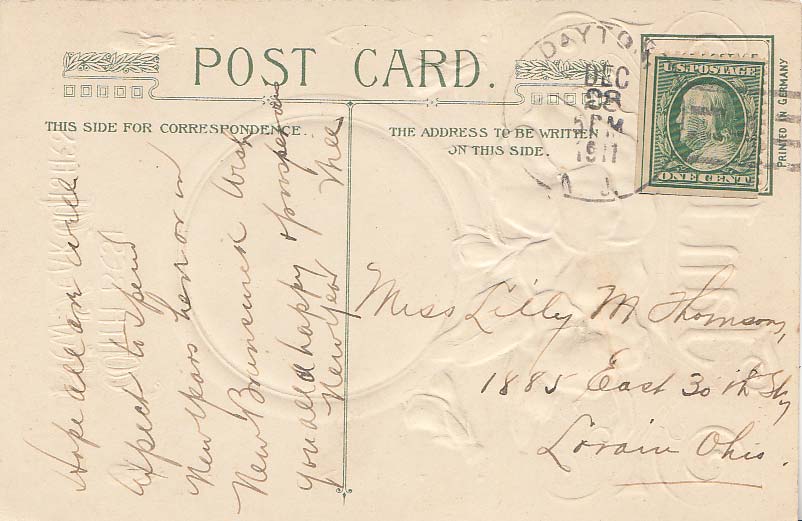 POST CARD.
THIS SIDE FOR CORRESPONDENCE.
THE ADDRESS TO BE WRITTEN
ON THIS SIDE.
DAYTON
DEC
28
5 PM
1911
N. J.
U.S. POSTAGE
ONE CENT
PRINTED IN GERMANY
Hope all are well
Expect to spend
New Years here or in
New Brunswick Wish
you all a happy & prosperous
New Year
Miss Lilly M Thomson,
1885 East 30th St,
Lorain Ohio.